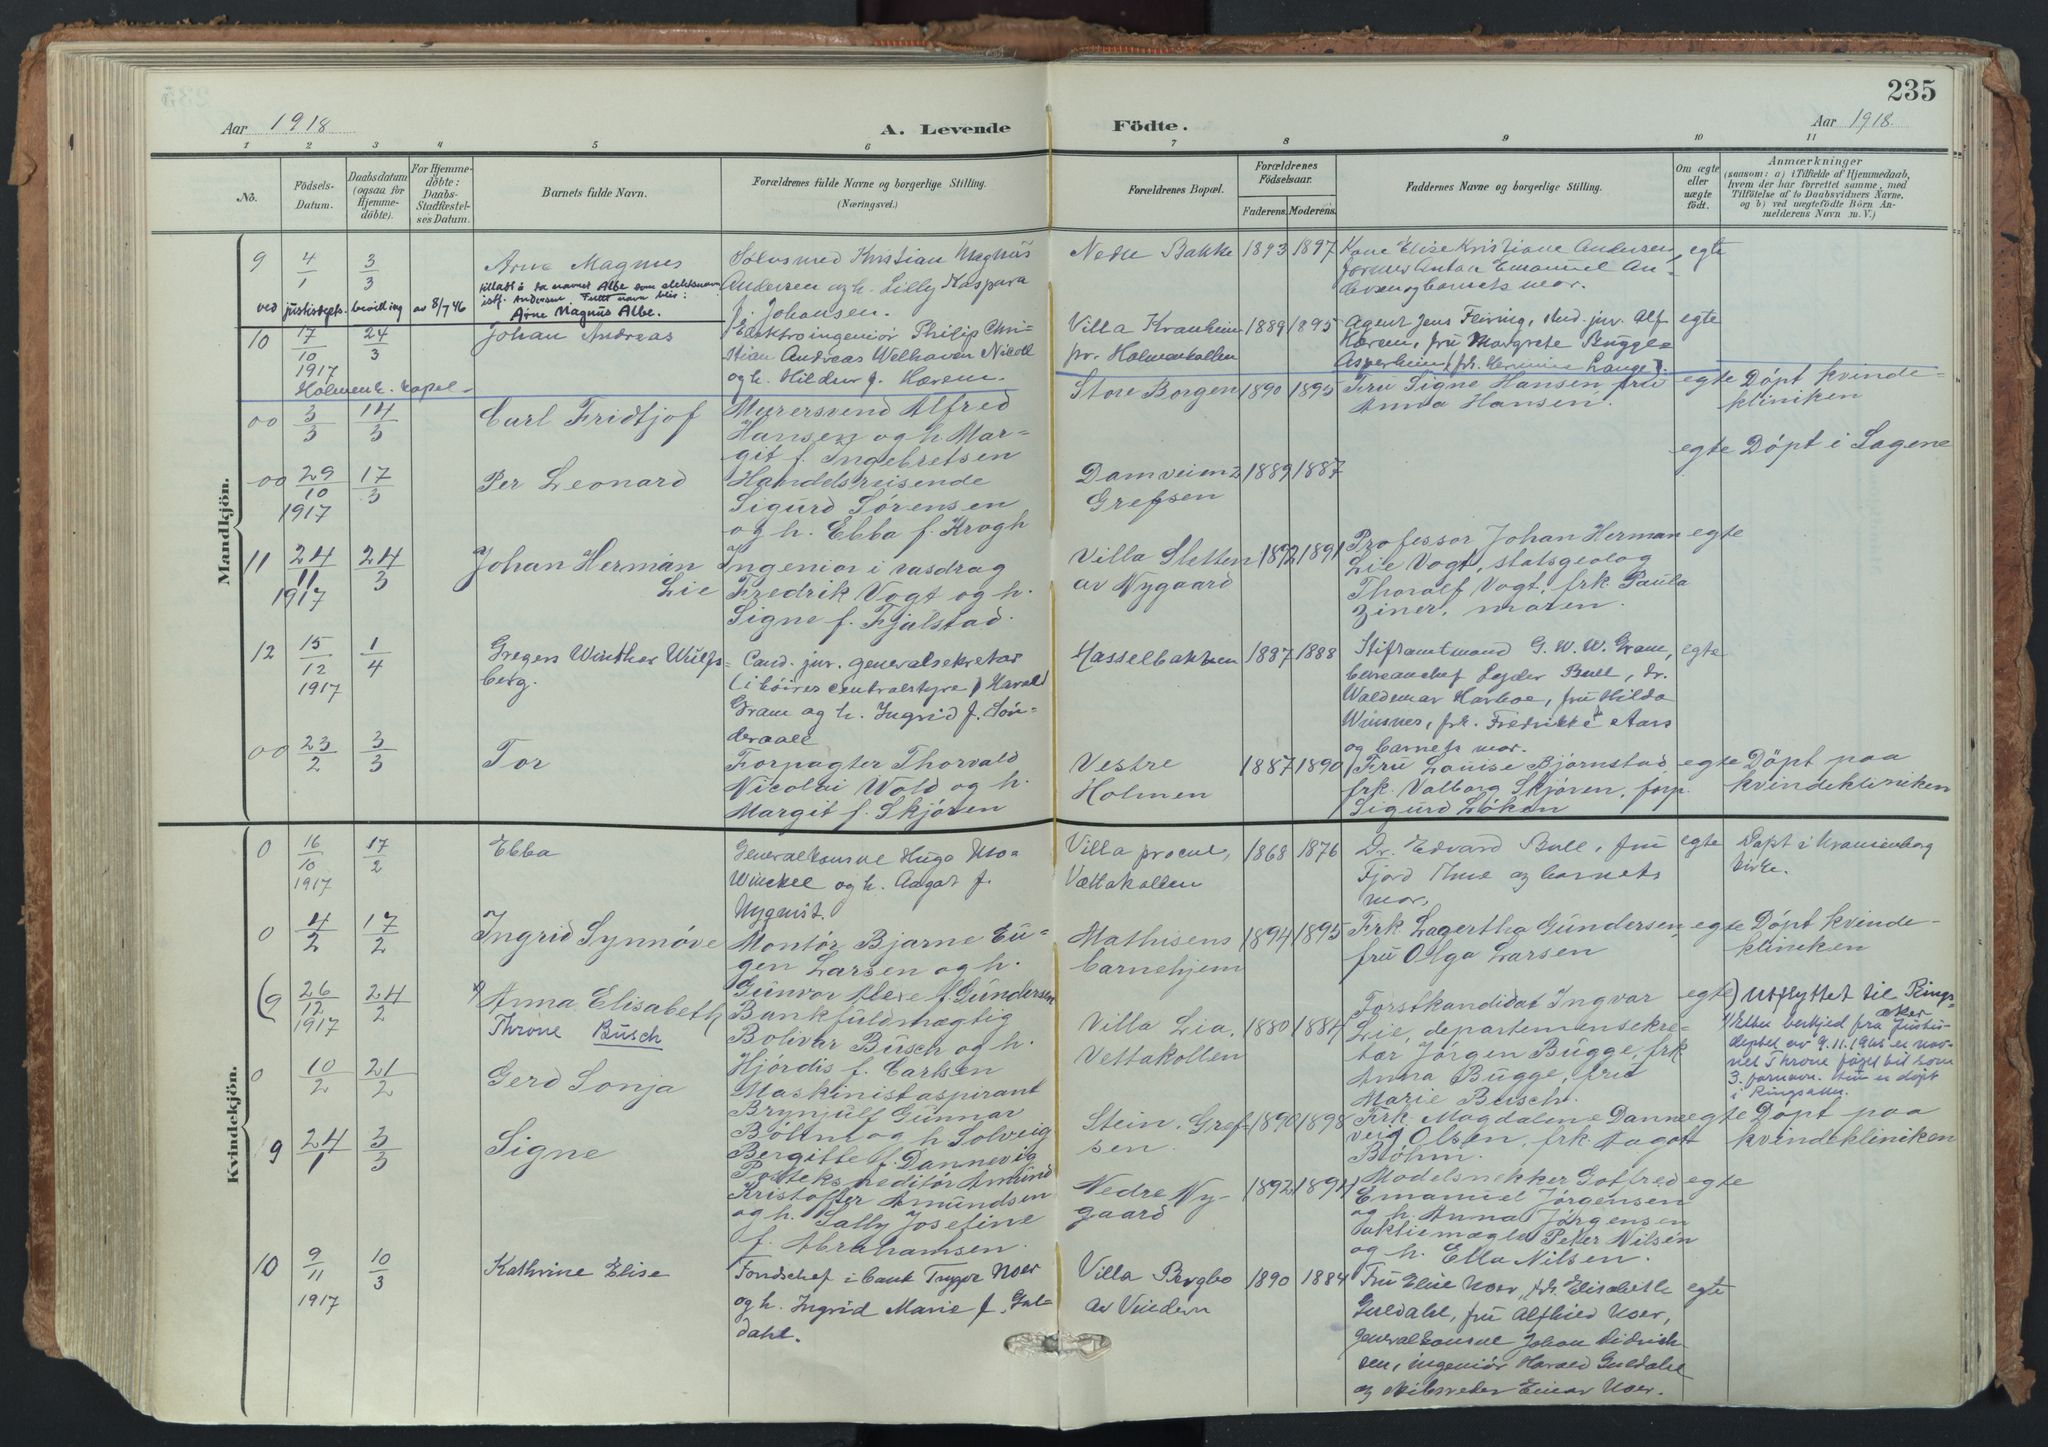 235
Aar 1918
A. Levende
Födte.
Aar 1918
1 2 3 4 5 6 7 8 9 10 11
No.
Födsels-
Datum.
Daabsdatum
(ogsaa for
Hjemme-
döbte).
For Hjemme-
döbte:
Daabs-
Stadfæstel-
ses Datum.
Barnets fulde Navn.
Forældrenes fulde Navne og borgerlige Stilling.
(Næringsvei.)
Forældrenes Bopæl.
Forældrenes
Födselsaar.
Faderens. Moderens.
Faddernes Navne og borgerlige Stilling.
Om ægte
eller
uægte
födt.
Anmærkninger
(saasom: a) i Tilfælde af Hjemmedaab,
hvem der har forrettet samme, med
Tilföielse af to Daabsvidners Navne,
og b) ved uægtefödte Börn An-
melderens Navn m. V.)
Mandkjön.
9 4/1 3/3
Arne Magnus
tillatt å ta navnet Albe som slektsnavn
istf. Andersen. Fullt navn blir:
Arne Magnus Albe.
ved justisdepts. bevilling av 8/7 46
Sølvsmed Kristian Magnus
Andersen og h. Lilly Kaspara
f. Johansen.
Nedre Bakke 1893 1897
Kone Elise Kristiane Andersen,
former Anton Emanuel An-
dersen og barnets mor.
egte
10 17/10 1917 24/3
Holmenk. kapel
Johan Andreas
Elektroingeniør Philip Chri-
stian Andreas Welhaven Nicoll
og h. Hildur f. Hærem.
Villa Kranheim
pr. Holmenkollen
1889 1895
Agent Jens Feiring, stud. jur. Alf
Hærem, fru Margrete Bugge-
Asperheim, frk. Lange.
egte
00 3/3 14/3
Carl Fridtjof
Murersvend Alfred
Hansen og h. Mar-
git f. Ingebretsen
Store Borgen 1890 1895
Fru Signe Hansen, fru
Anna Hansen.
egte
Döpt kvinde-
kliniken
00 29/10 1917 17/3
Per Leonard
Handelsreisende
Sigurd Sørensen
og h. Ebba f. Krogh
Damveien 2
Grefsen
1889 1887
egte Döpt i Sagene
11 24/11 1917 24/3
Johan Herman
Lie
Ingeniør i vasdrag
Fredrik Vogt og h.
Signe f. Fjälstad.
Villa Sletten
av Nygaard
1892 1891
Professor Johan Herman
Lie Vogt, statsgeolog
Thorolf Vogt, frk. Paula
Ziner, moren.
egte
12 15/12 1917 1/4
Gregers Winther Wulfs-
berg.
Cand. jur. generalsekretær
(i höires centralstyre) Harald
Gram og h. Ingrid f. Sön-
deraall
Hasselbakken 1887 1888
Stiftamtmand G. W. W. Gram,
bureauchef Bull, dr.
Waldemar Harboe, fru Hilda
Winsnes, frk. Fredrikke Aars
og barnets mor.
egte
00 23/2 3/3
Tor
Forpagter Thorvald
Nicolai Wold og h.
Margit f. Skjören
Vestre
Holmen
1887 1890
Fru Louise Bjørnstad,
frk. Valborg Skjören, forp.
Sigurd Løken
egte
Döpt paa
kvindekliniken
Kvindekjön.
0 16/10 1917 17/2
Ebba
Generalkonsul Hugo Mo-
Winckel og h. Aagot f.
Nyquist.
Villa procul,
Vættakollen
1868 1876
Dr. Edvard Bull, fru
Fjord Thue og barnets
mor.
egte
Döpt i Uranienborg
kirke.
0 4/2 17/2
Ingrid Synnöve
Montör Bjarne Eu-
gen Larsen og h.
Gunvor f. Gundersen
Mathisens
barnehjem
1894 1895
Frk Lagertha Gundersen,
fru Olga Larsen
egte
Döpt kvinde-
kliniken
(9 26/12 1917 24/2
Anna Elisabeth
Throne Busch
Bankfuldmægtig
Bolivar Busch og h.
Hjördis f. Carlsen
Villa Lia,
Vettakollen
1880 1884
Forstkandidat Ingvar
Lie, departementsekre-
tær Jörgen Bugge, frk
Anna Bugge, fru
Marie Busch.
egte) Utflyttet til Rings-
aker
Etter fra Justis-
deptet av 9.11.1965 er nav-
net Throne föyet til som
3. fornavn. Hun er döpt
i Ringsaker.
0 10/2 21/2
Gerd Sonja
Maskinistaspirant
Brynjulf Gunnar
Böhm og h. Solveig
Bergitte f. Dannevig
Stein, Gref-
sen.
1890 1898
Frk. Magdalene Danne-
vig Olsen, frk. Aagott
Böhm.
egte
Döpt paa
kvindekliniken
9 24/1 3/3
Signe
Postekspeditör Amund
Kristoffer Amundsen
og h. Sally Josefine
f. Abrahamsen.
Nedre Ny-
gaard
1892 1894
Modelsnekker Gotfred
Emanuel Jörgensen
og h. Anna Jörgensen
aktiemægler Peter Nilsen
og h. Ella Nilsen.
egte
10 9/11 1917 10/3
Kathrine Elise
Fondschef i bank Trygve Noer
og h. Ingrid Marie f. Gul-
dahl.
Villa Bergbo
av Vindern
1890 1884
Fru Elise Noer, fr. Elisabeth
Guldahl, fru Alfhild Noer,
generalkonsul Johan Didrich-
sen, ingeniör Harald Guldahl
og skibsreder Einar Noer.
egte